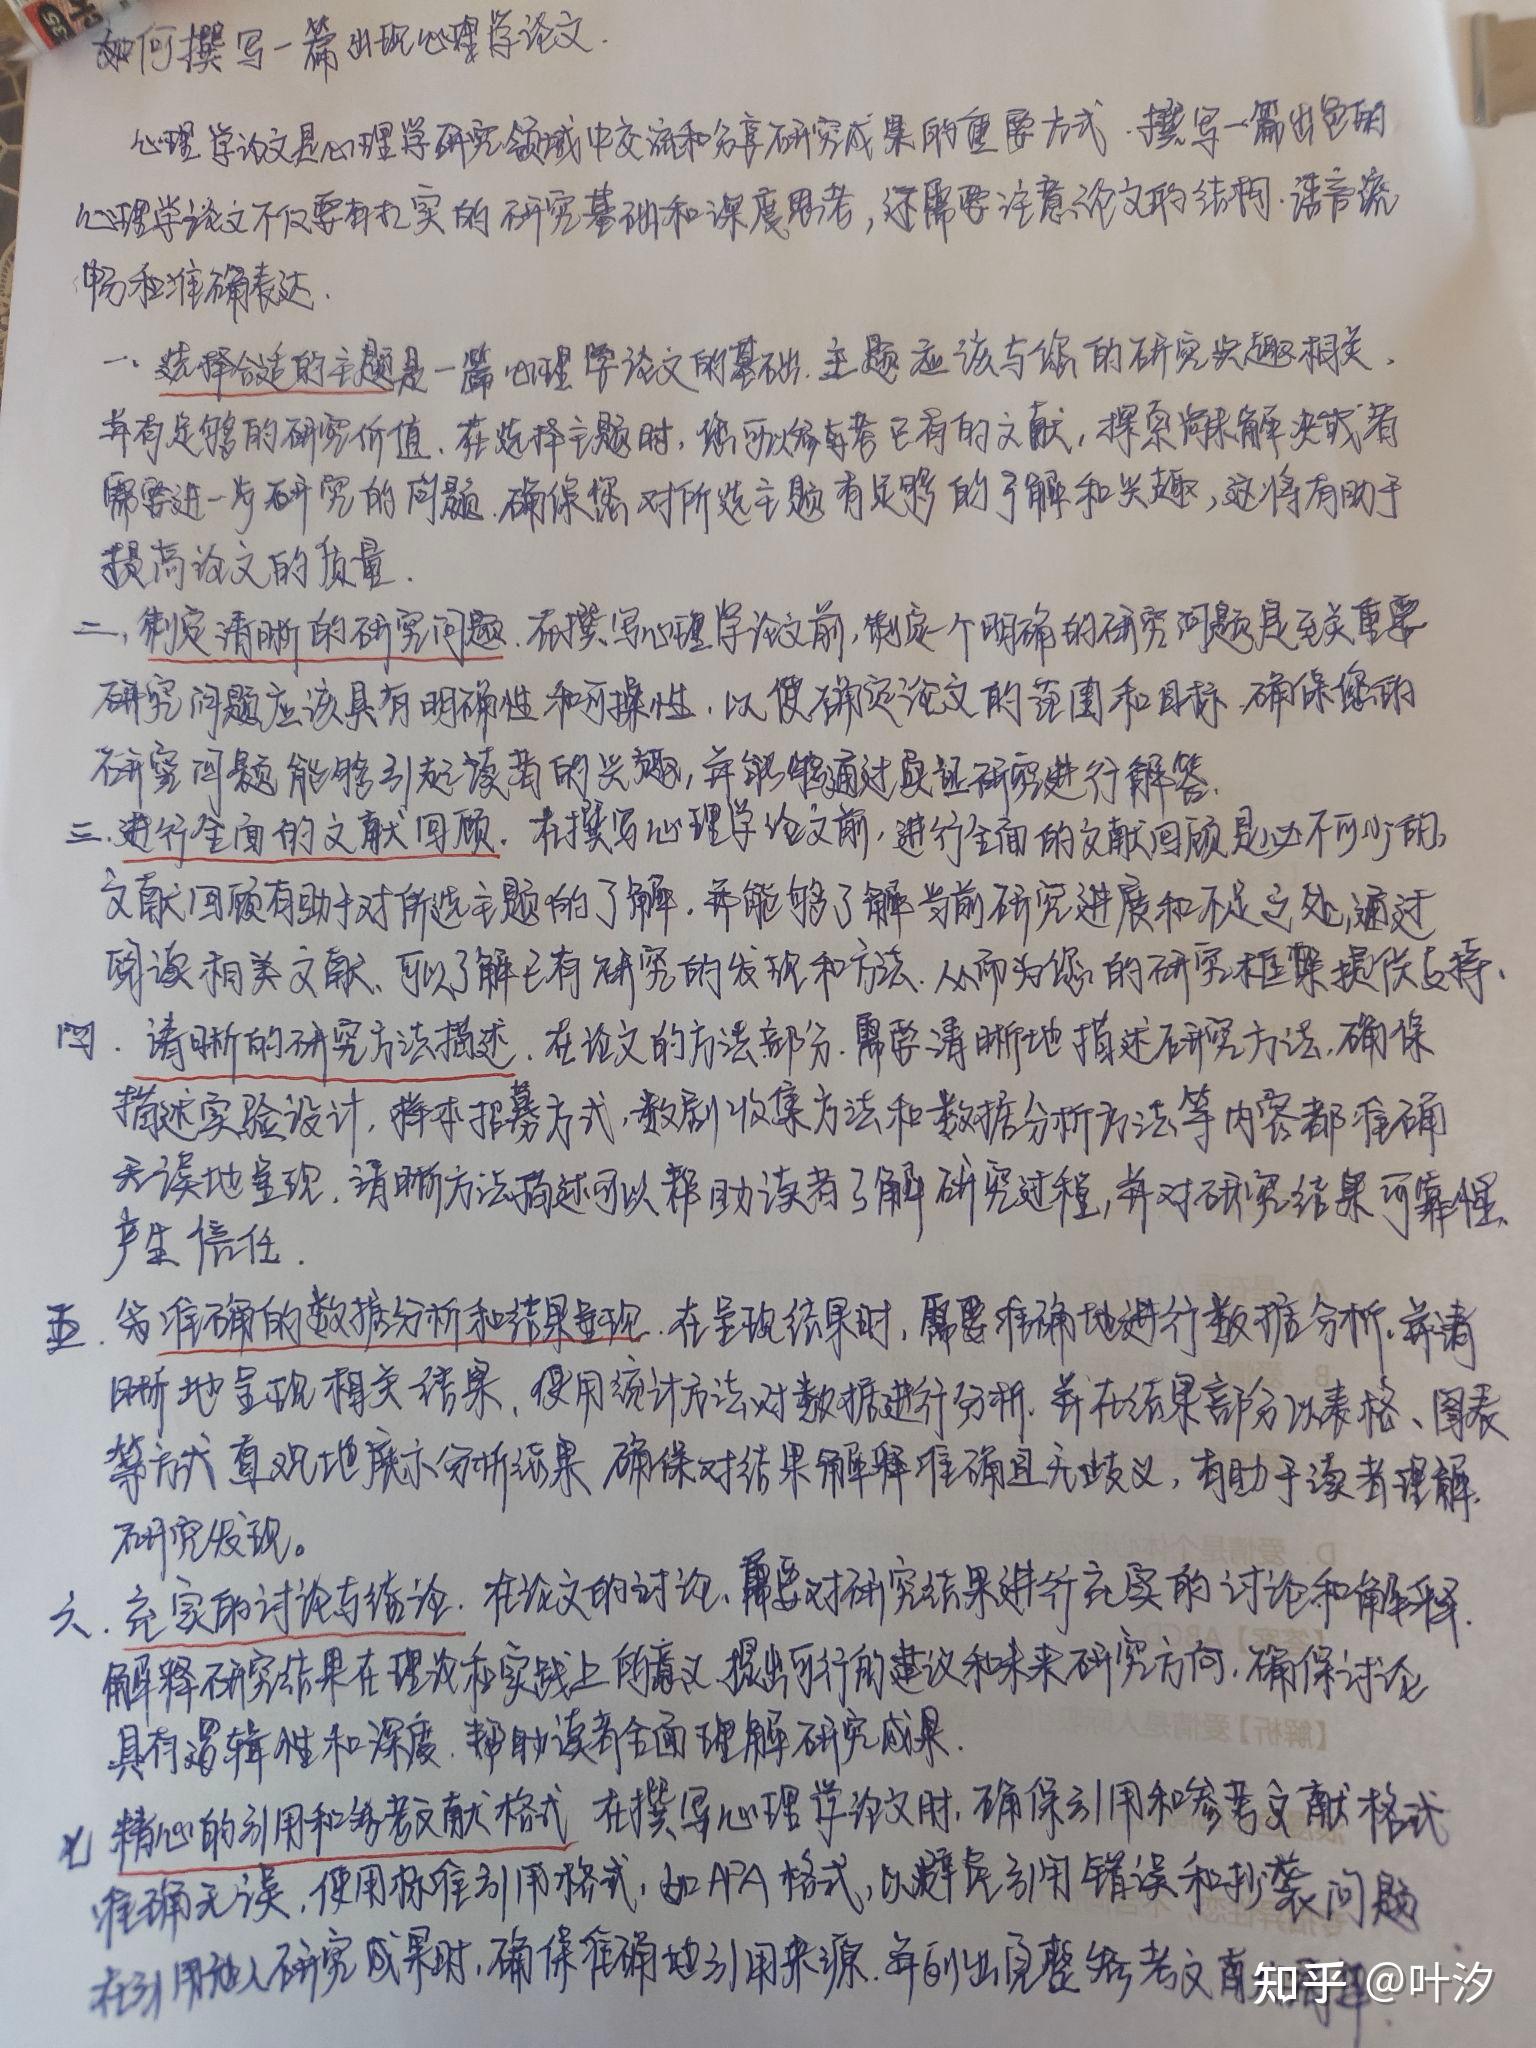 如何撰写一篇出现心理学论文.
心理学论文是心理学研究领域中交流和分享研究成果的重要方式.撰写一篇出色的
心理学论文不仅要有扎实的研究基础和深度思考,还需要注意论文的结构.语言流
畅和准确表达.
一、选择合适的主题是一篇心理学论文的基础.主题应该与您的研究兴趣相关.
并有足够的研究价值.在选择主题时,您可以参考已有的文献,探索尚未解决或者
需要进一步研究的问题.确保您对所选主题有足够的了解和兴趣,这将有助于
提高论文的质量.
二、制定清晰的研究问题.在撰写心理学论文前,制定一个明确的研究问题是至关重要
研究问题应该具有明确性和可操性.以便确定论文的范围和目标.确保您的
研究问题能够引起读者的兴趣,并能够通过实证研究进行解答.
三.进行全面的文献回顾.在撰写心理学论文前,进行全面的文献回顾是必不可少的,
文献回顾有助于对所选主题的了解.并能够了解当前研究进展和不足之处,通过
阅读相关文献、可以了解已有研究的发现和方法.从而为您的研究框架提供支持.
四.清晰的研究方法描述.在论文的方法部分.需要清晰地描述研究方法.确保
描述实验设计,样本招募方式,数剧收集方法和数据分析方法等内容都准确
无误地呈现.清晰方法描述可以帮助读者了解研究过程,并对研究结果可靠性
产生信任.
五.准确的数据分析和结果呈现.在呈现结果时,需要准确地进行数据分析.并清
晰地呈现相关结果.使用统计方法对数据进行分析.并在结果部分以表格、图表
等方式直观地展示分析结果 确保对结果解释准确且无歧义,有助于读者理解
研究发现。
六.充实的讨论与结论.在论文的讨论、需要对研究结果进行充实的讨论和解释.
解释研究结果在理论和实践上的意义.提出可行的建议和未来研究方向.确保讨论
具有逻辑性和深度.帮助读者全面理解研究成果.
七 精心的引用和参考文献格式 在撰写心理学论文时.确保引用和参考文献格式
准确无误.使用标准引用格式,如APA格式,以避免引用错误和抄袭问题
在引用他人研究成果时,确保准确地引用来源.并列出完整参考文献
知乎 @叶汐